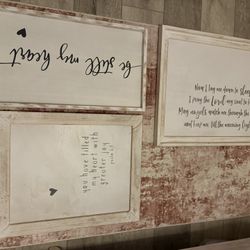 be still my heart
you have filled
my heart with
greater joy
Now I lay me down to sleep
I pray the Lord my soul to
May angels watch me through the
and            me till the morning light